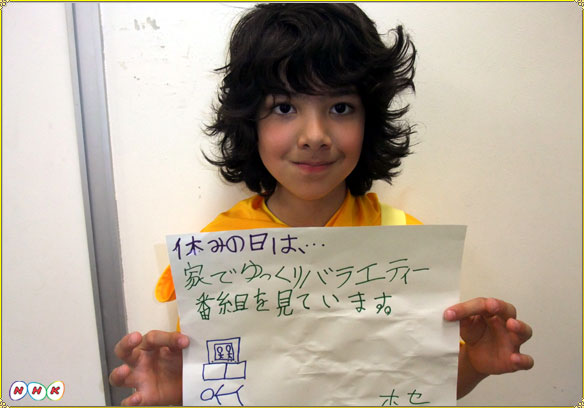 休みの日は、…
家でゆっくりバラエティー
番組を見ています。
ホセ
NHK